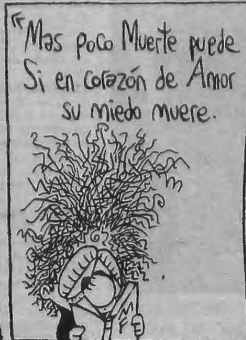 "Mas poco Muerte puede
Si en corazón de Amor
su miedo muere.